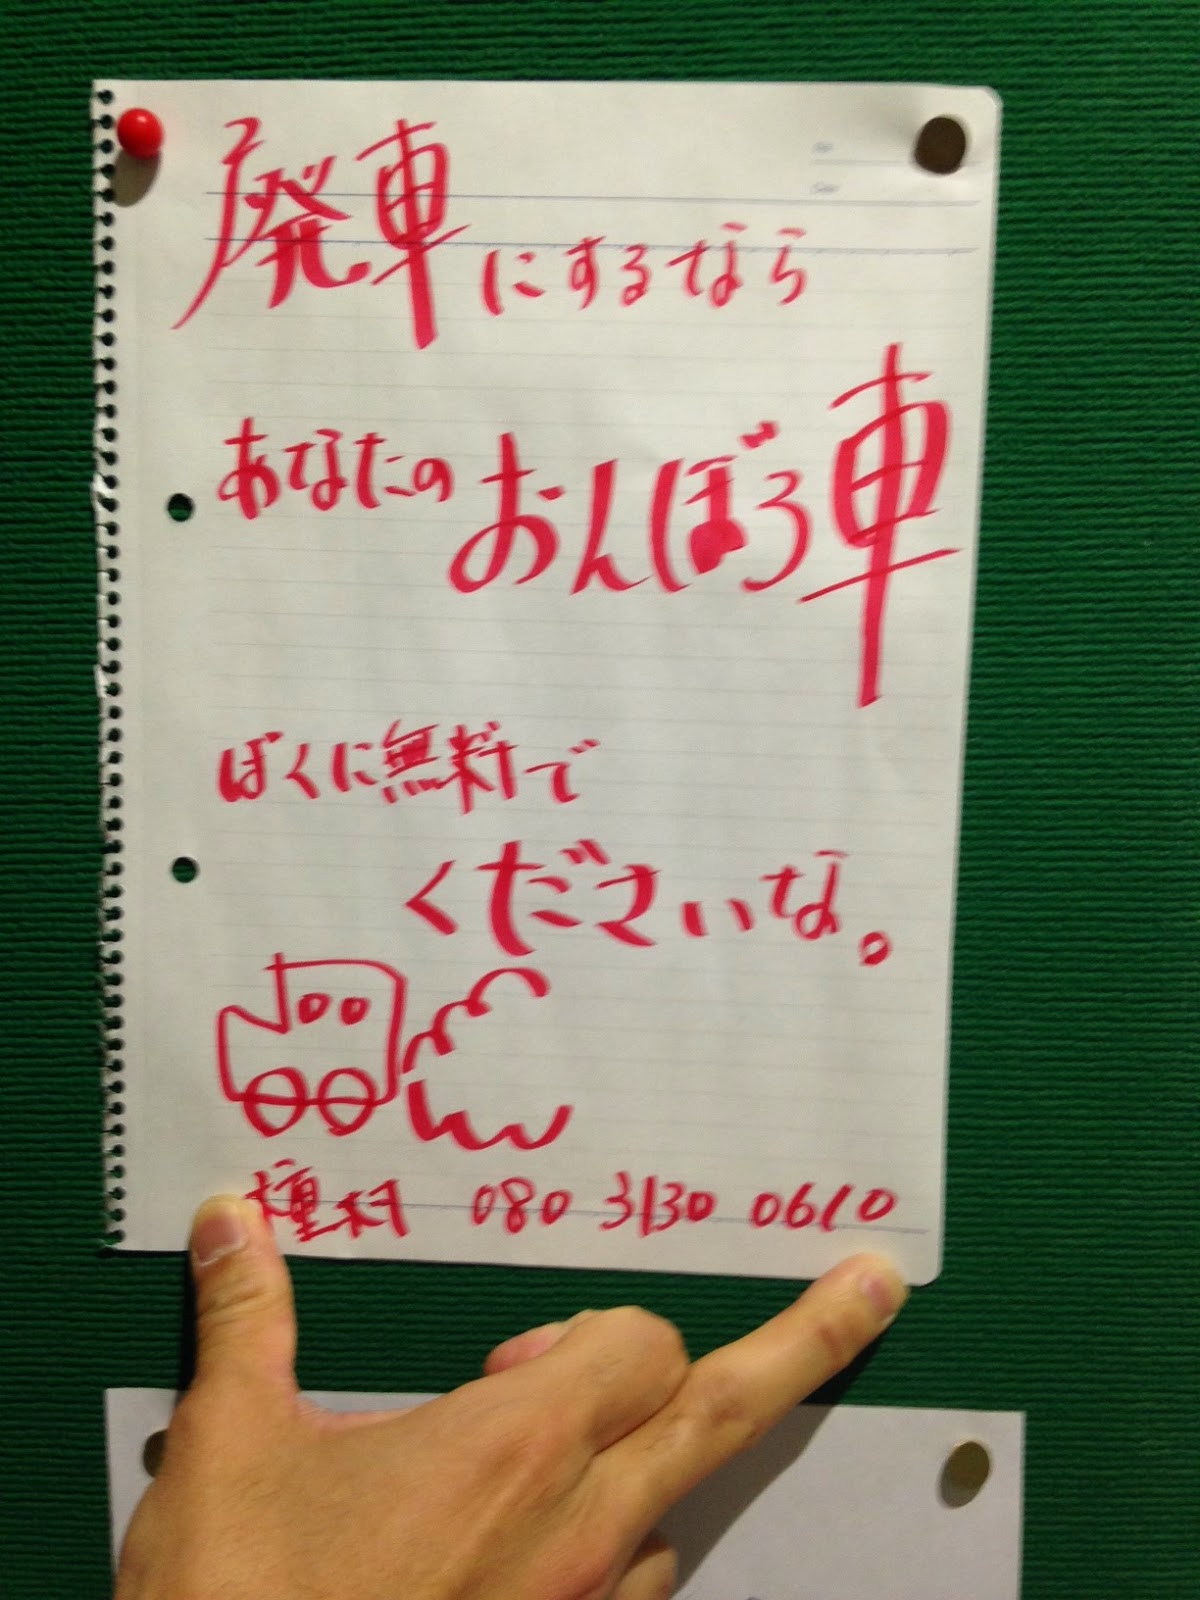 廃車にするなら
あなたのおんぼろ車
ぼくに無料で
くださいな。
種村 080 3130 0610